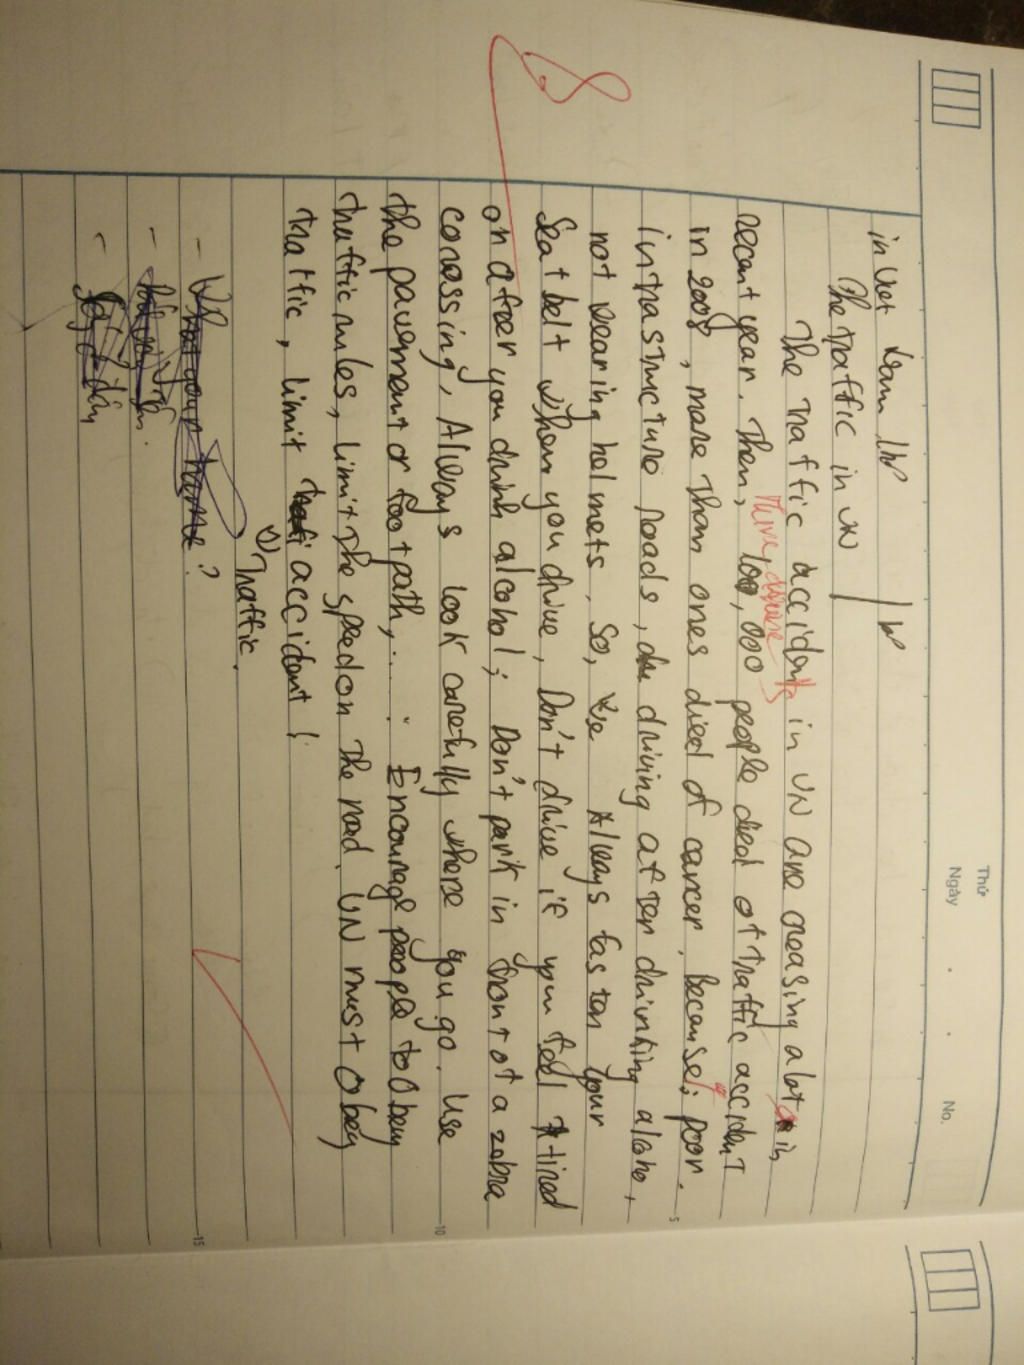 Thứ
Ngày . . No.
in Viet Nam
The traffic in VN
The traffic accidents in VN are creasing alot in
recant year. Then, 100,000 people died of traffic accident
in 2008, more than ones died of cancer, because; poor.
intrastructure roads, driving after drinking alcoho,
not wearing helmets, So, we Always fasten your
Seat belt when you drive, Don't drive if you feel tired
on after you drink alcohol; Don't park in front of a zebra
conessing, Always look carefully where you go. Use
the pavement or footpath,... Encourage people to Obey
traffic rules, limit the speed on the road. VN must Obey
traffic, limit accident!
Traffic.
- What your name?
-
-
8
5
10
15